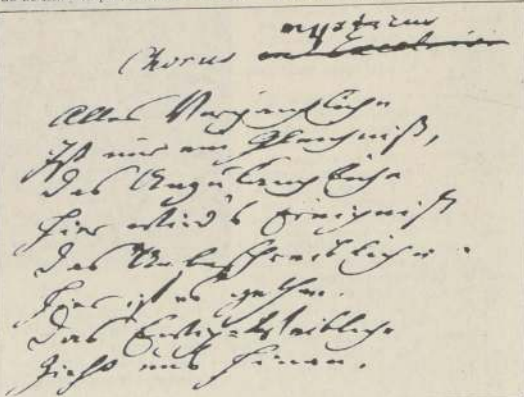 mysticus
Chorus in Excelsis
Alles Vergängliche
Ist nur ein Gleichniß,
Das Unzulängliche
Hier wird's Ereigniß
Das Unbeschreibliche.
Hier ist es gethan.
Das Ewig=Weibliche
Zieht uns hinan.